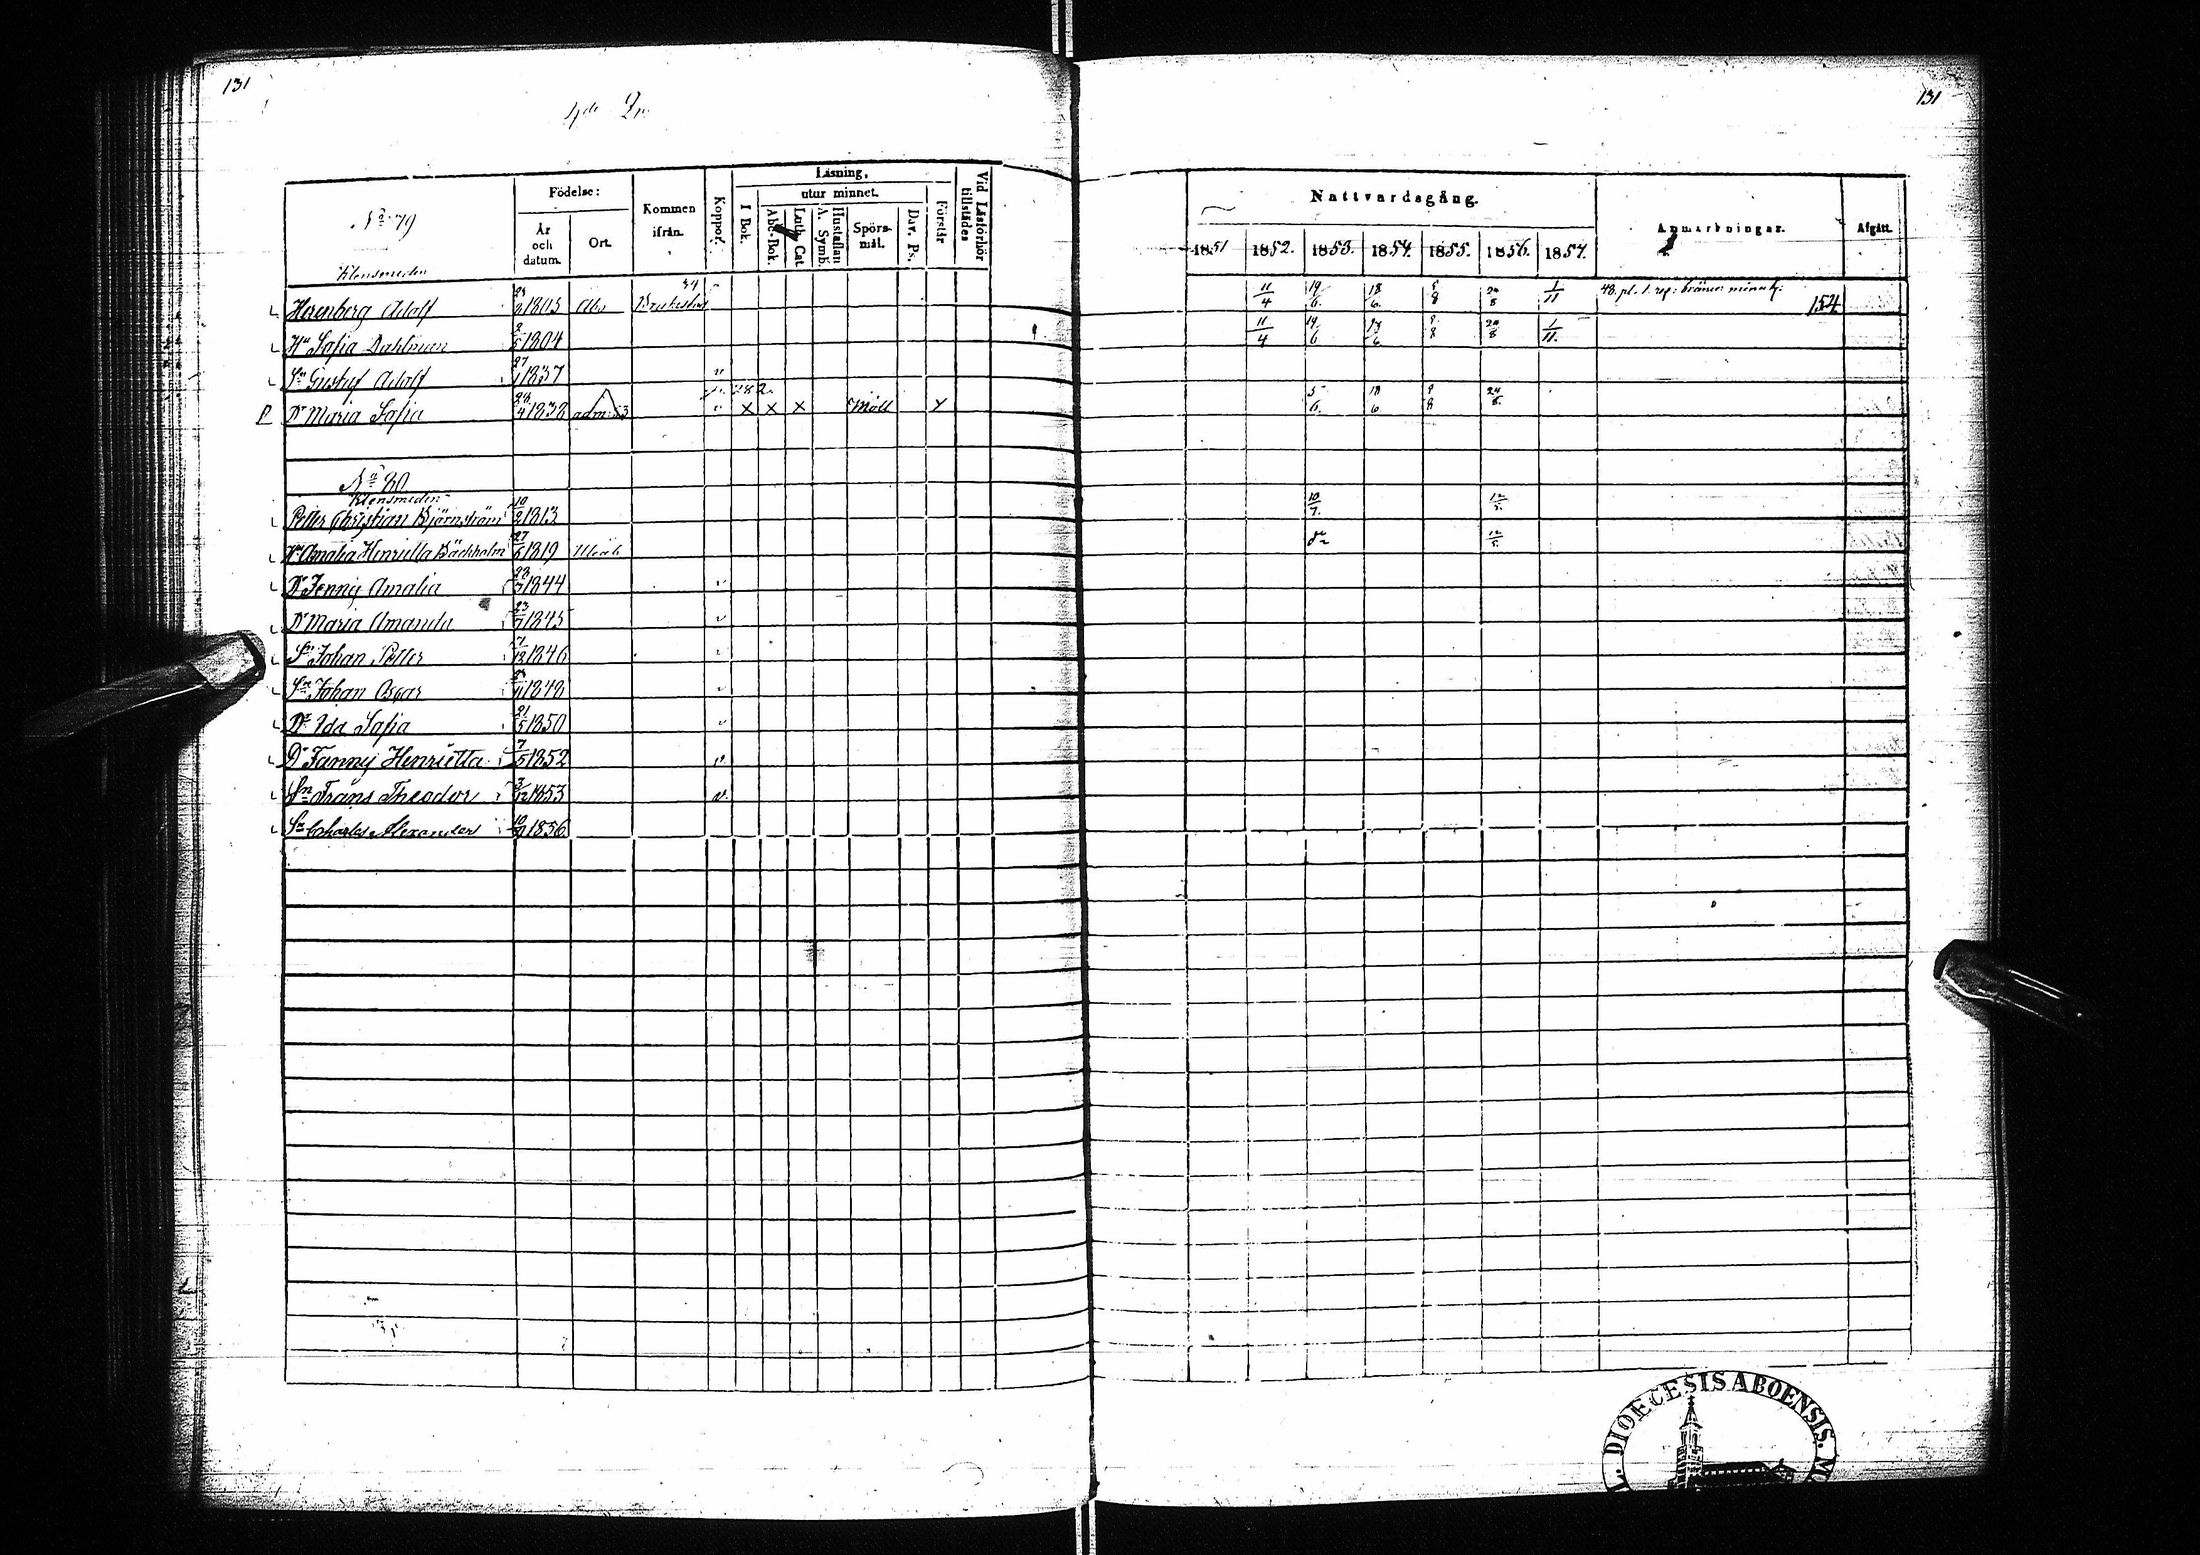 131
131
4de Qr
No 79
Födelse:
År och datum.
Ort.
Kommen ifrån.
Koppor.
Läsning,
utur minnet.
I Bok.
Abc-Bok.
Luth. Cat
Hustaflan A. Symb.
Spörs-mål.
Dav. Ps.
Förstår
Vid Läsförhör tillstädes
Nattvardsgång.
1851 1852. 1853. 1854. 1855. 1856. 1857.
Anmärkningar.
Afgått.
Klensmeden
Herenberg Adolf 1803 Åbo 11/4 19/6. 18/6. 8/8 24/8 1/11 48. pl. 1. rep: 154
Hu Sofia Dahlman 2/5 1804 11/4 19/6 18/6 8/8 24/8 1/11.
Sn Gustaf Adolf 27/1 1837
282
Dr Maria Sofia 28/4 1838 adm: 53 x x x Möll x 5/6. 18/6 8/8 24/8.
No 80
Klensmeden
Petter Christian Björnström 10/2 1813 10/7. 12/5.
Hu Amalia Henrietta Bäckholm 27/5 1819 Uleåb do 12/5.
Dr Jenny Amalia 23/3 1844
Dr Maria Amanda 23/7 1845
Sn Johan Petter 7/12 1846
Sn Johan Oscar 5/11 1848
Dr Ida Sofia 21/5 1850
Dr Fanny Henrietta 7/5 1852 v.
Sn Frans Theodor 3/12 1853 v.
Sn Charles Alexander 10/9 1856
DIOECESIS ABOENSIS.